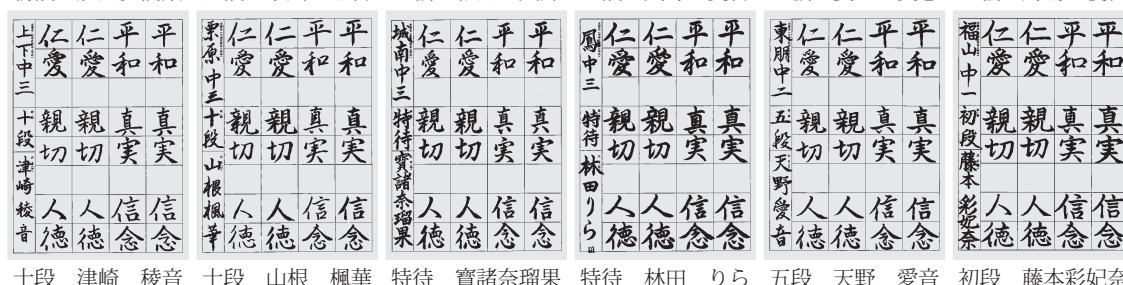 平和 平和 仁愛 仁愛
真実 真実 親切 親切
信念 信念 人徳 人徳
上下中三 十段 津崎稜音
平和 平和 仁愛 仁愛
真実 真実 親切 親切
信念 信念 人徳 人徳
栗原中三 十段 山根楓華
平和 平和 仁愛 仁愛
真実 真実 親切 親切
信念 信念 人徳 人徳
城南中三 特待 寳諸奈瑠果
平和 平和 仁愛 仁愛
真実 真実 親切 親切
信念 信念 人徳 人徳
鳳中三 特待 林田りら
平和 平和 仁愛 仁愛
真実 真実 親切 親切
信念 信念 人徳 人徳
東朋中二 五段 天野愛音
平和 平和 仁愛 仁愛
真実 真実 親切 親切
信念 信念 人徳 人徳
福山中一 初段 藤本彩妃奈
十段 津崎 稜音 十段 山根 楓華 特待 寳諸奈瑠果 特待 林田 りら 五段 天野 愛音 初段 藤本彩妃奈